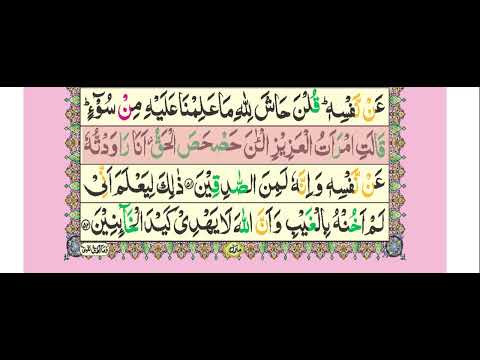 عَنْ نَّفْسِهٖ ؕ قُلْنَ حَاشَ لِلّٰهِ مَا عَلِمْنَا عَلَيْهِ مِنْ سُوْٓءٍ ؕ
قَالَتِ امْرَاَتُ الْعَزِيْزِ الْـٰٔنَ حَصْحَصَ الْحَقُّ ؗ اَنَا رَاوَدْتُّهٗ
عَنْ نَّفْسِهٖ وَاِنَّهٗ لَمِنَ الصّٰدِقِيْنَ ﴿۵۱﴾ ذٰلِكَ لِيَعْلَمَ اَنِّىْ
لَمْ اَخُنْهُ بِالْغَيْبِ وَاَنَّ اللّٰهَ لَا يَهْدِىْ كَيْدَ الْخَآئِنِيْنَ ﴿۵۲﴾